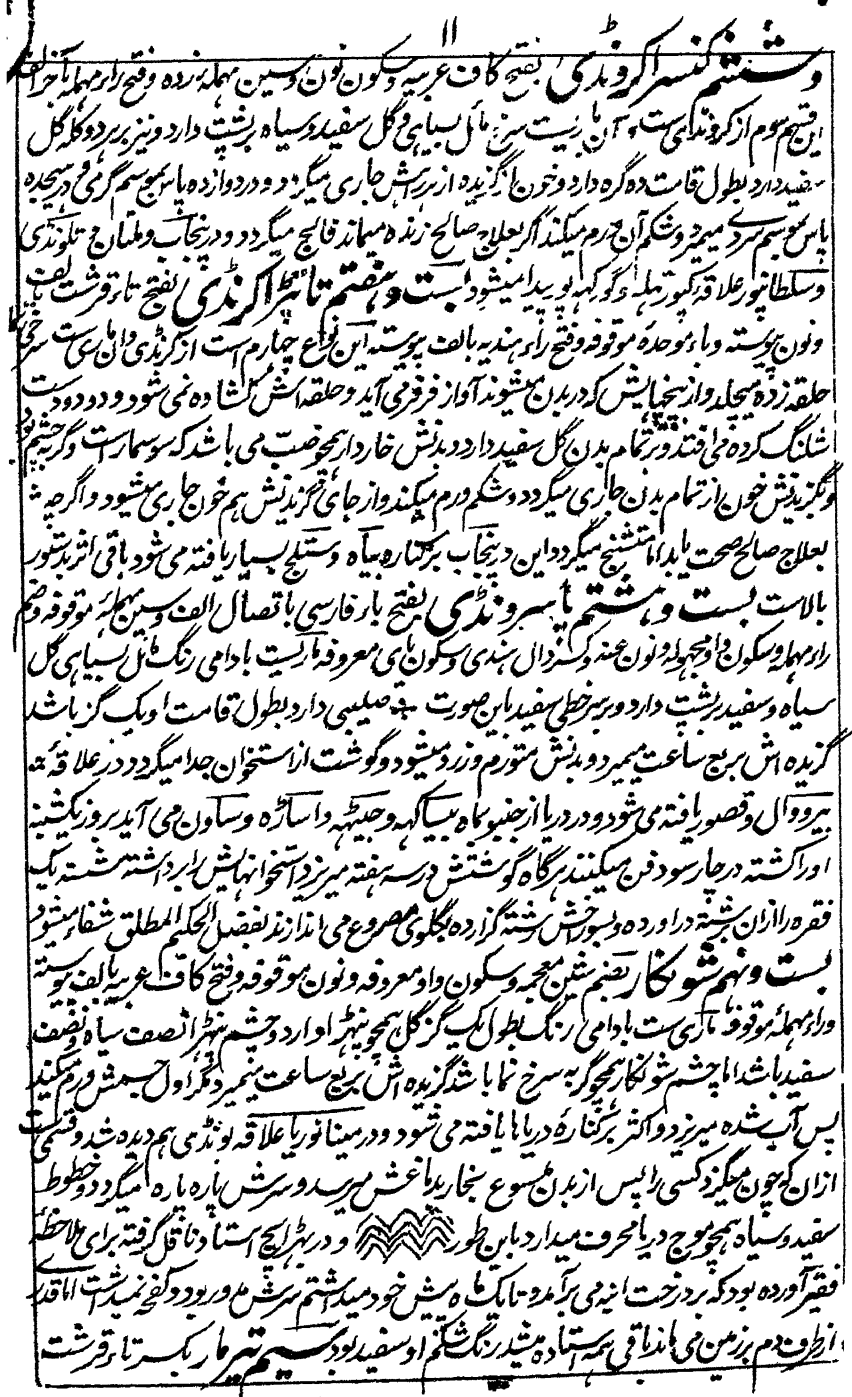 ۱۱
و ششم کنسرا کرونڈی بفتح کاف عربیه و سکون نون و سین مهمله زده و فتح راء مهمله بآخر الف
این قسم سوم از کرونڈی ست و آن ماریست سرخ مائل بسیاهی و گل سفید و سیاه بر پشت دارد و نیز بر هر دو کله گل
سفید دارد بطول قامت ده گره دارد و خون از گزیده از هر پش جاری میگردد و در دوازده پاس بموسم گرمی و در هیجده
پاس بموسم سردی میمیرد و شکم آن ورم میکند اگر بعلاج صالح زنده میماند فالج میگردد و در پنجاب و ملتان و تلونڈی
و سلطانپور علاقه کپورتهله و گورکهپور پیدا میشود بست و هفتم تانبڑا کرنڈی بفتح تاء قرشت بالف
و نون پیوسته و باء موحده موقوفه و فتح راء هندیه بالف پیوسته این نوع چهارم است از کرنڈی و آن ماری ست سرخی نما
حلقه زده میچلد و از پیچهایش که در بدن میشوند آواز فرفر می آید و حلقه اش کشاده نمی شود و دو دو دست
شلنگ کرده می افتد و بر تمام بدن گل سفید دارد و بدنش خاردار همچو ضب می باشد که سوسمار است و گربه چشم بود
و بگزیدنش خون از تمام بدن جاری میگردد و شکم ورم میکند و از جای گزیدنش هم خون جاری میشود و اگرچه
بعلاج صالح صحت یابد اما متشنج میگردد و این در پنجاب بر کناره بیاه و ستلج بسیار یافته می شود باقی اثر بدستور
بالاست بست و هشتم پاسرونڈی بفتح باء فارسی باتصال الف و سین مهمله موقوفه و ضم
راء مهمله و سکون واو مجهوله و نون غنه و کسر دال هندی و سکون یای معروفه ماریست بادامی رنگ مائل بسیاهی گل
سیاه و سفید بر پشت دارد و بر سر خطی سفید باین صورت صلیبی دارد بطول قامت او یک گز باشد
گزیده اش بربع ساعت میمیرد و بدنش متورم و زرد میشود و گوشت از استخوان جدا میگردد در علاقه
بیرووال و قصور یافته می شود و در دریا از جنبو بماه بیساکهه و جیٹهه و اساڑه و ساون می آید بروز یکشنبه
او را کشته در چار سو دفن میکنند هرگاه گوشتش در سه هفته میریزد استخوانهایش را برداشته شسته یک
فقره را ازان برشته در آورده و بسوراخش رشته گزارده بگلوی مصروع می اندازند بفضل الحکیم المطلق شفاء میشود
بست و نهم شونکار بضم شین معجمه و سکون واو معروفه و نون موقوفه و فتح کاف عربیه بالف پیوسته
و راء مهمله موقوفه ماری ست بادامی رنگ بطول یک گز گل همچو پنهڑا دارد و چشم پنهڑا نصف سیاه و نصف
سفید باشد اما چشم شونکار همچو گربه سرخ نما باشد گزیده اش بربع ساعت میمیرد مگر اول جسمش ورم میکند
پس آب شده میریزد و اکثر بر کناره دریاها یافته می شود و در مینانوریا علاقه بونڈی هم دیده شد و قسمی ست
ازان که چون میگزد کسی را پس از بدن ملسوع بخار بدماغش میرسد و سرش پاره پاره میگردد و خطوط
سفید و سیاه همچو موج دریا محرف میدارد باین طور و در بهڑایچ استاد ناقل گرفته برای ملاحظه
فقیر آورده بود که بر درخت انبه می برآمد و تا یک ماه پیش خود میداشتم سرش مدور بود و کفچه نمیداشت اما قدری
از طرف دم بر زمین می ماند باقی همه استاده میشد رنگ شکم او سفید بود سیم تیرمار بکسر تاء قرشت